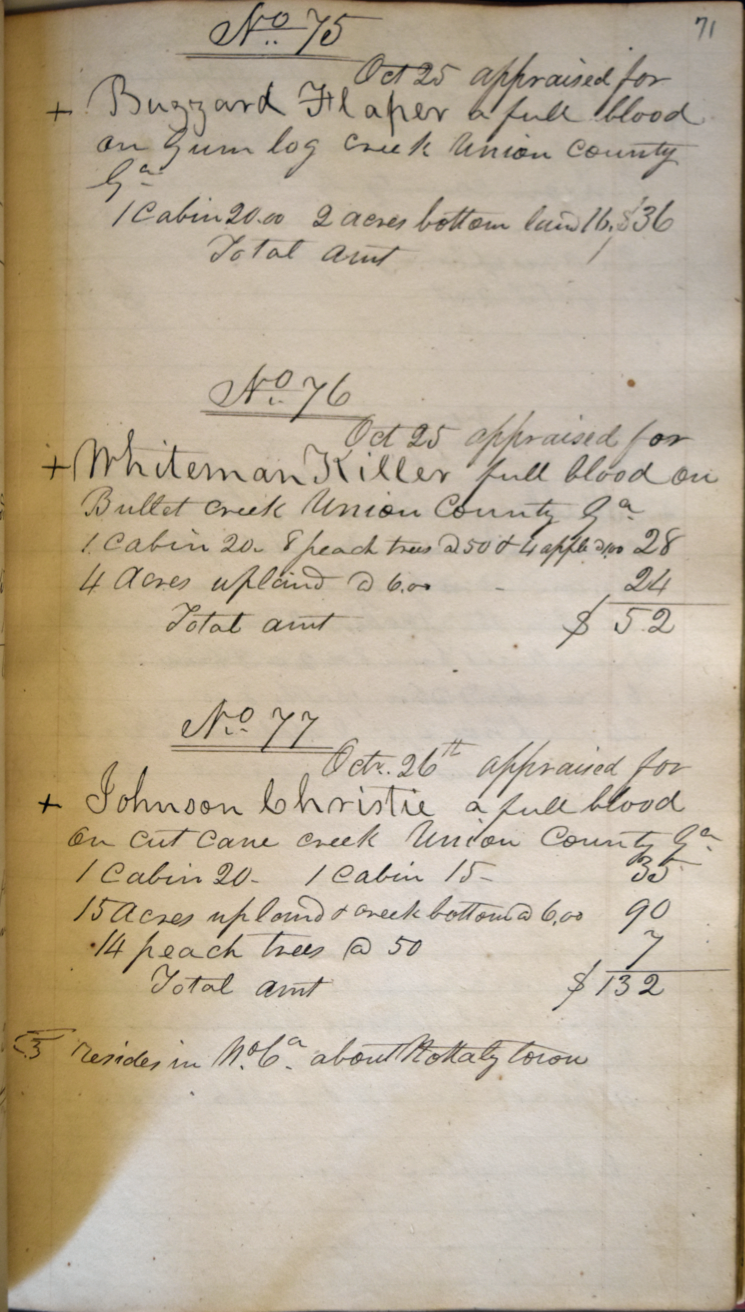 71
No. 75
Oct 25 appraised for
+ Buzzard Flaper a full blood
on Gum log creek Union County
Ga
1 Cabin 20.00 2 acres bottom land 16. $36
Total amt
No. 76
Oct 25 appraised for
+ Whiteman Killer full blood on
Bullet creek Union County Ga
1 Cabin 20- 8 peach trees @ 50 & 4 apple @ 1.00 28
4 Acres upland @ 6.00 - 24
Total amt $ 52
No. 77
Octr. 26th appraised for
+ Johnson Christie a full blood
on cut cane creek Union County Ga
1 Cabin 20- 1 Cabin 15- 35
15 Acres upland & creek bottom @ 6.00 90
14 peach trees @ 50 7
Total amt $ 132
resides in No. Ca. about town